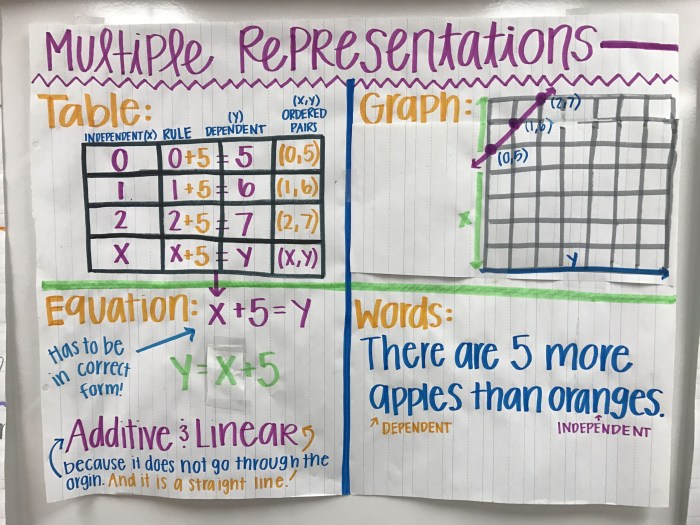 Multiple Representations
Table:
INDEPENDENT(X) RULE (Y) DEPENDENT (X,Y) ORDERED PAIRS
0 0+5= 5 (0,5)
1 1+5= 6 (1,6)
2 2+5= 7 (2,7)
X X+5= Y (X,Y)
Graph:
(2,7)
(1,6)
(0,5)
X
Y
Equation: X+5=Y
Has to be
in correct
form!
Y=X+5
Additive & Linear
because it does not go through the
orgin. And it is a straight line.
Words:
There are 5 more
apples than oranges.
DEPENDENT
INDEPENDENT